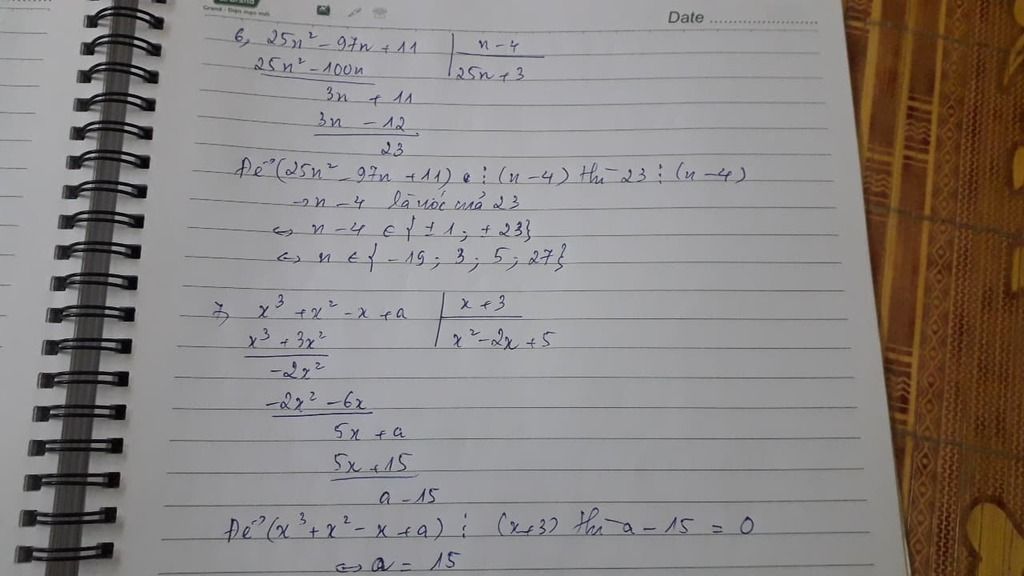 Date
6, 25n² - 97n + 11 | n - 4
25n² - 100n | 25n + 3
3n + 11
3n - 12
23
Để (25n² - 97n + 11) ⋮ (n - 4) thì 23 ⋮ (n - 4)
→ n - 4 là ước của 23
⇔ n - 4 ∈ { ±1 ; ±23}
⇔ n ∈ { -19 ; 3 ; 5 ; 27}
7, x³ + x² - x + a | x + 3
x³ + 3x² | x² - 2x + 5
-2x²
-2x² - 6x
5x + a
5x + 15
a - 15
Để (x³ + x² - x + a) ⋮ (x+3) thì a - 15 = 0
⇔ a = 15